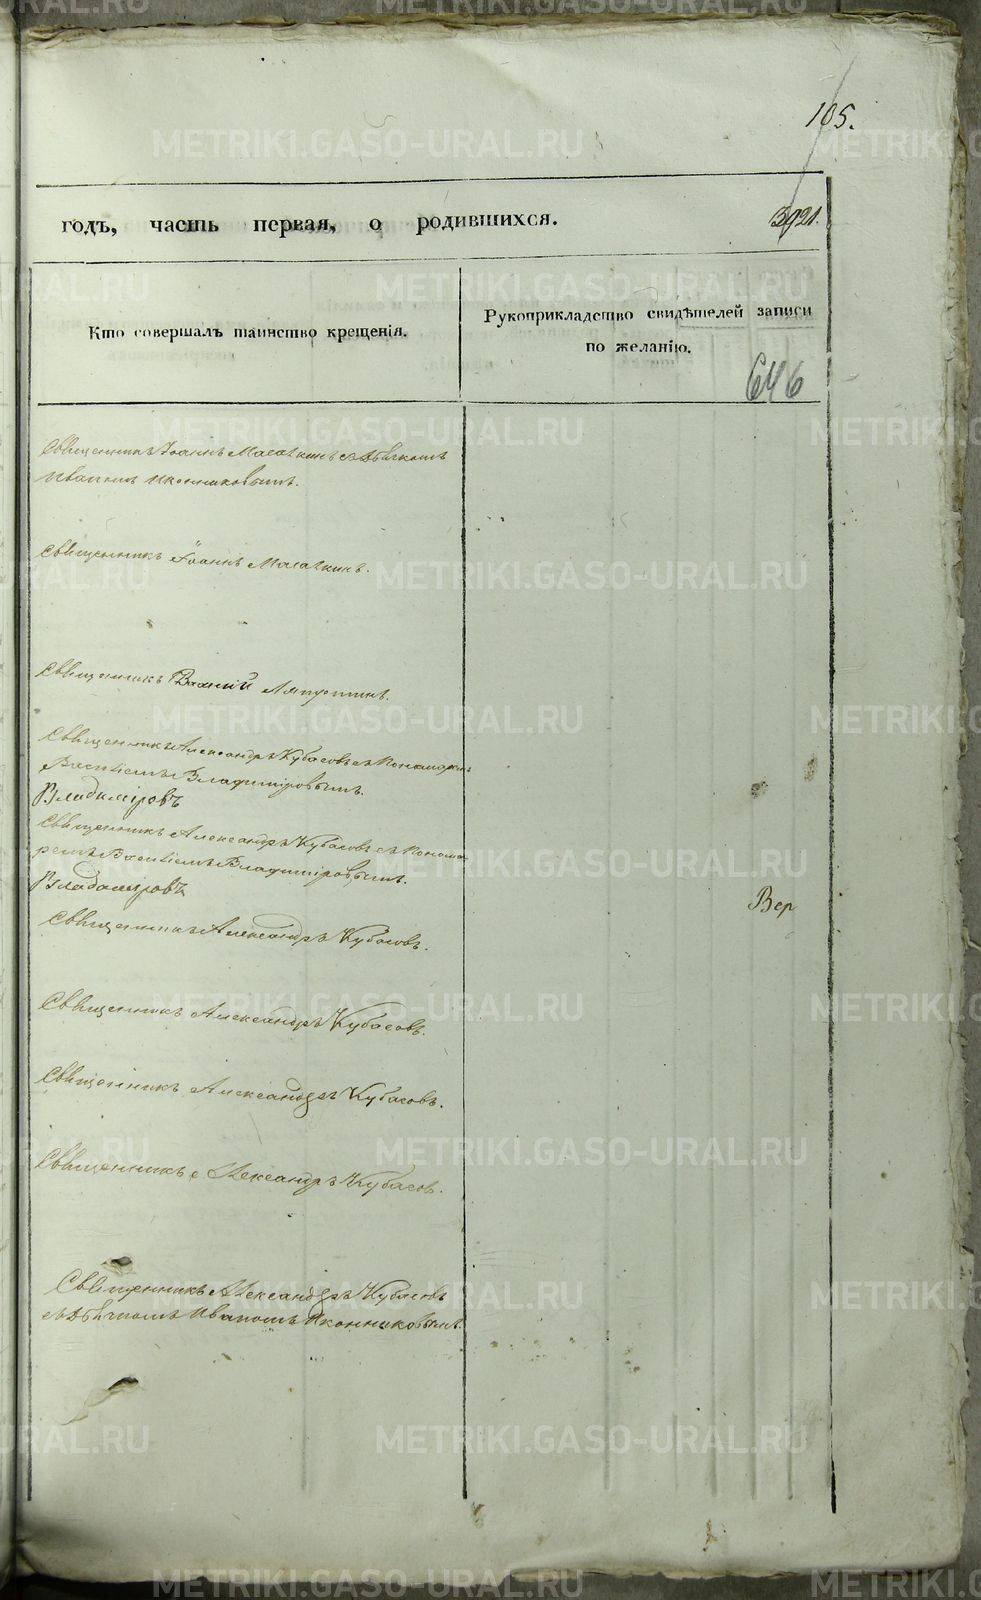 105.
годъ, часть первая, о родившихся.
3921.
Кто совершалъ таинство крещенія.
Рукоприкладство свидѣтелей записи
по желанію.
646
Священникъ Іоаннъ Масаткинъ съ дьячкомъ
Иваномъ Иконниковымъ.
Священникъ Іоаннъ Масаткинъ.
Священникъ Василій Ляпустинъ.
Священникъ Александръ Кубасовъ съ Пономаремъ
Василіемъ Владимировымъ.
Владимировъ
Священникъ Александръ Кубасовъ съ Понома
ремъ Василіемъ Владимировымъ.
Владимировъ
Вер
Священникъ Александръ Кубасовъ.
Священникъ Александръ Кубасовъ.
Священникъ Александръ Кубасовъ.
Священникъ Александръ Кубасов.
Священникъ Александръ Кубасовъ
съ дьячкомъ Иваномъ Иконниковымъ.
METRIKI.GASO-URAL.RU